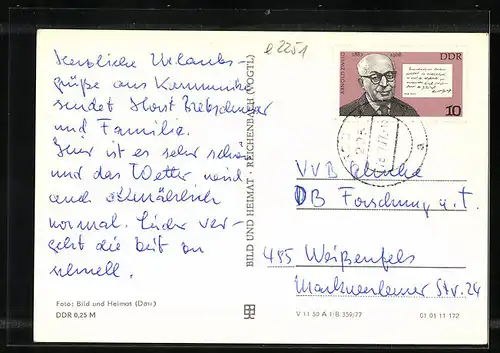 e 2251
Herzliche Urlaubs-
grüße aus
sendet Horst
und Familie.
Hier ist es sehr schön
und das Wetter wird
auch allmählich
normal. Leider ver-
geht die Zeit zu
schnell.
Foto: Bild und Heimat (Darr)
DDR 0,25 M
BILD UND HEIMAT · REICHENBACH (VOGTL)
ARNOLD ZWEIG
1887 1968
DDR
10
VVB
DB Forschung u. T.
485 Weißenfels
Markwerbener Str. 24
V 11 50 A 1/B 359/77
01 01 11 172